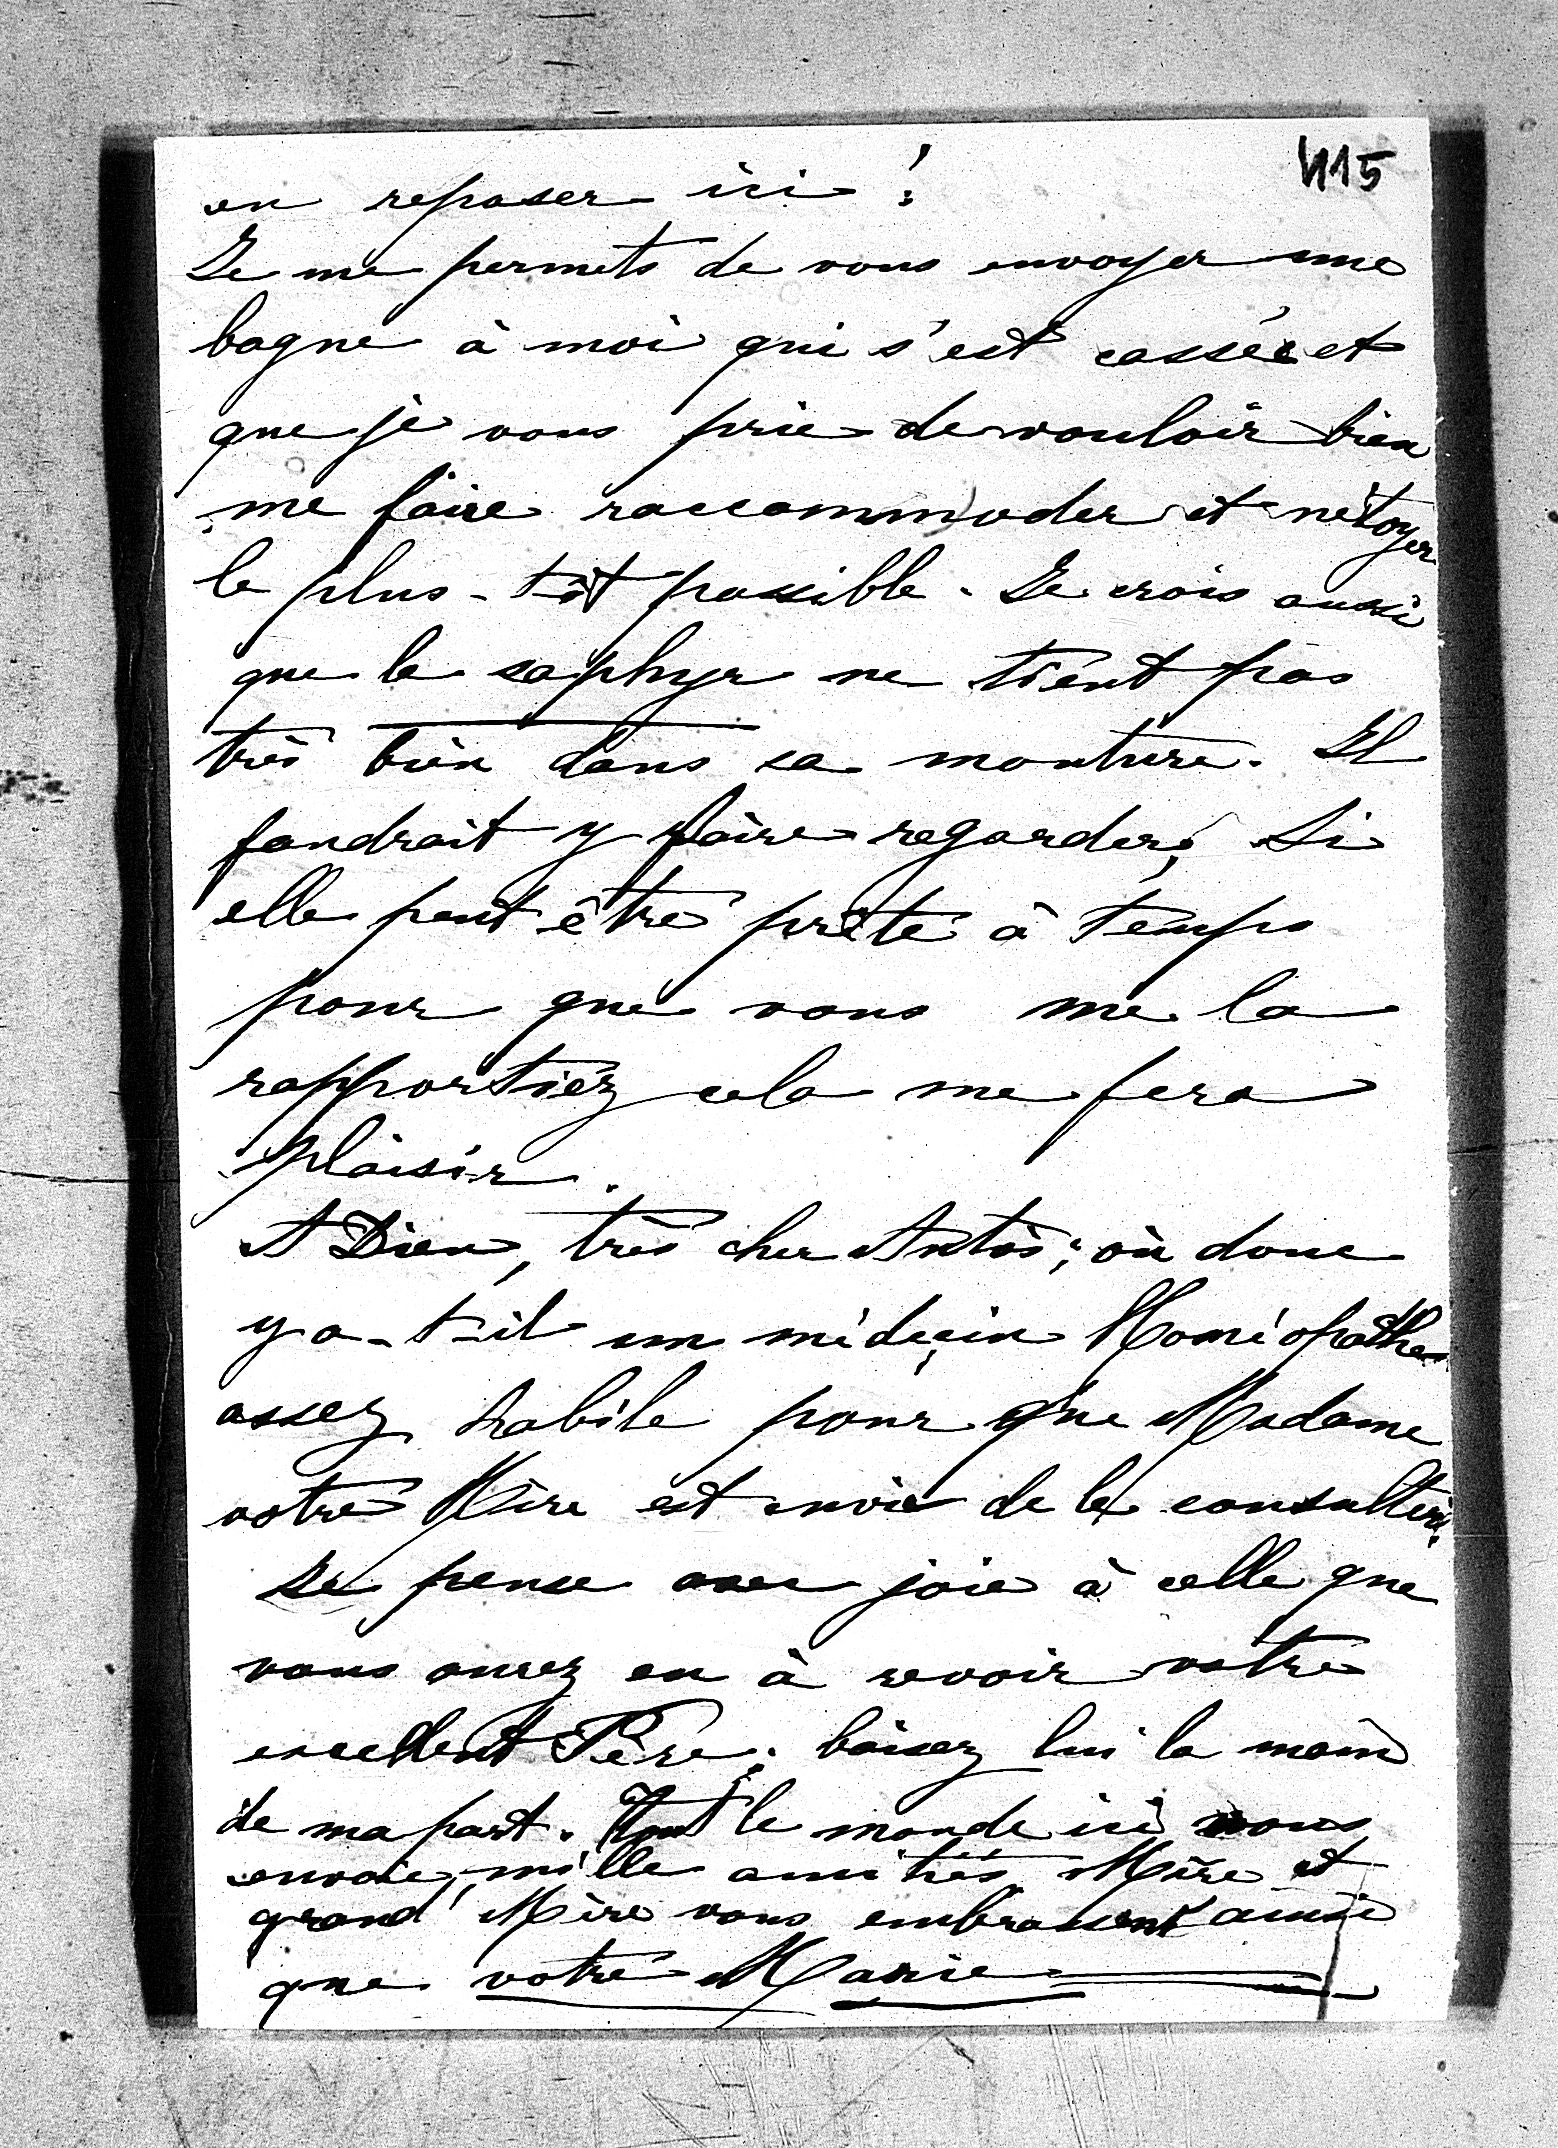 415
en reposer ici!
Je me permets de vous envoyer une
bague à moi qui s'est cassée et
que je vous prie de vouloir bien
me faire raccommoder et nétoyer
le plus-tôt possible. Je crois aussi
que le saphyr ne tient pas
très bien dans sa monture. Il
faudrait y faire regarder; Si
elle peut être prête à temps
pour que vous me la
rapportiez cela me fera
plaisir.
A Dieu, très cher Antòs; où donc
y a-t-il un médecin Homéopathe
assez habile pour que Madame
votre Mère est envie de le consulter.
Je pense avec joie à celle que
vous aurez eu à revoir votre
excellent Père; baisez lui la main
de ma part. Tout le monde ici vous
envoie mille amitiés, Mère et
grand' Mère vous embrassent ainsi
que votre Marie